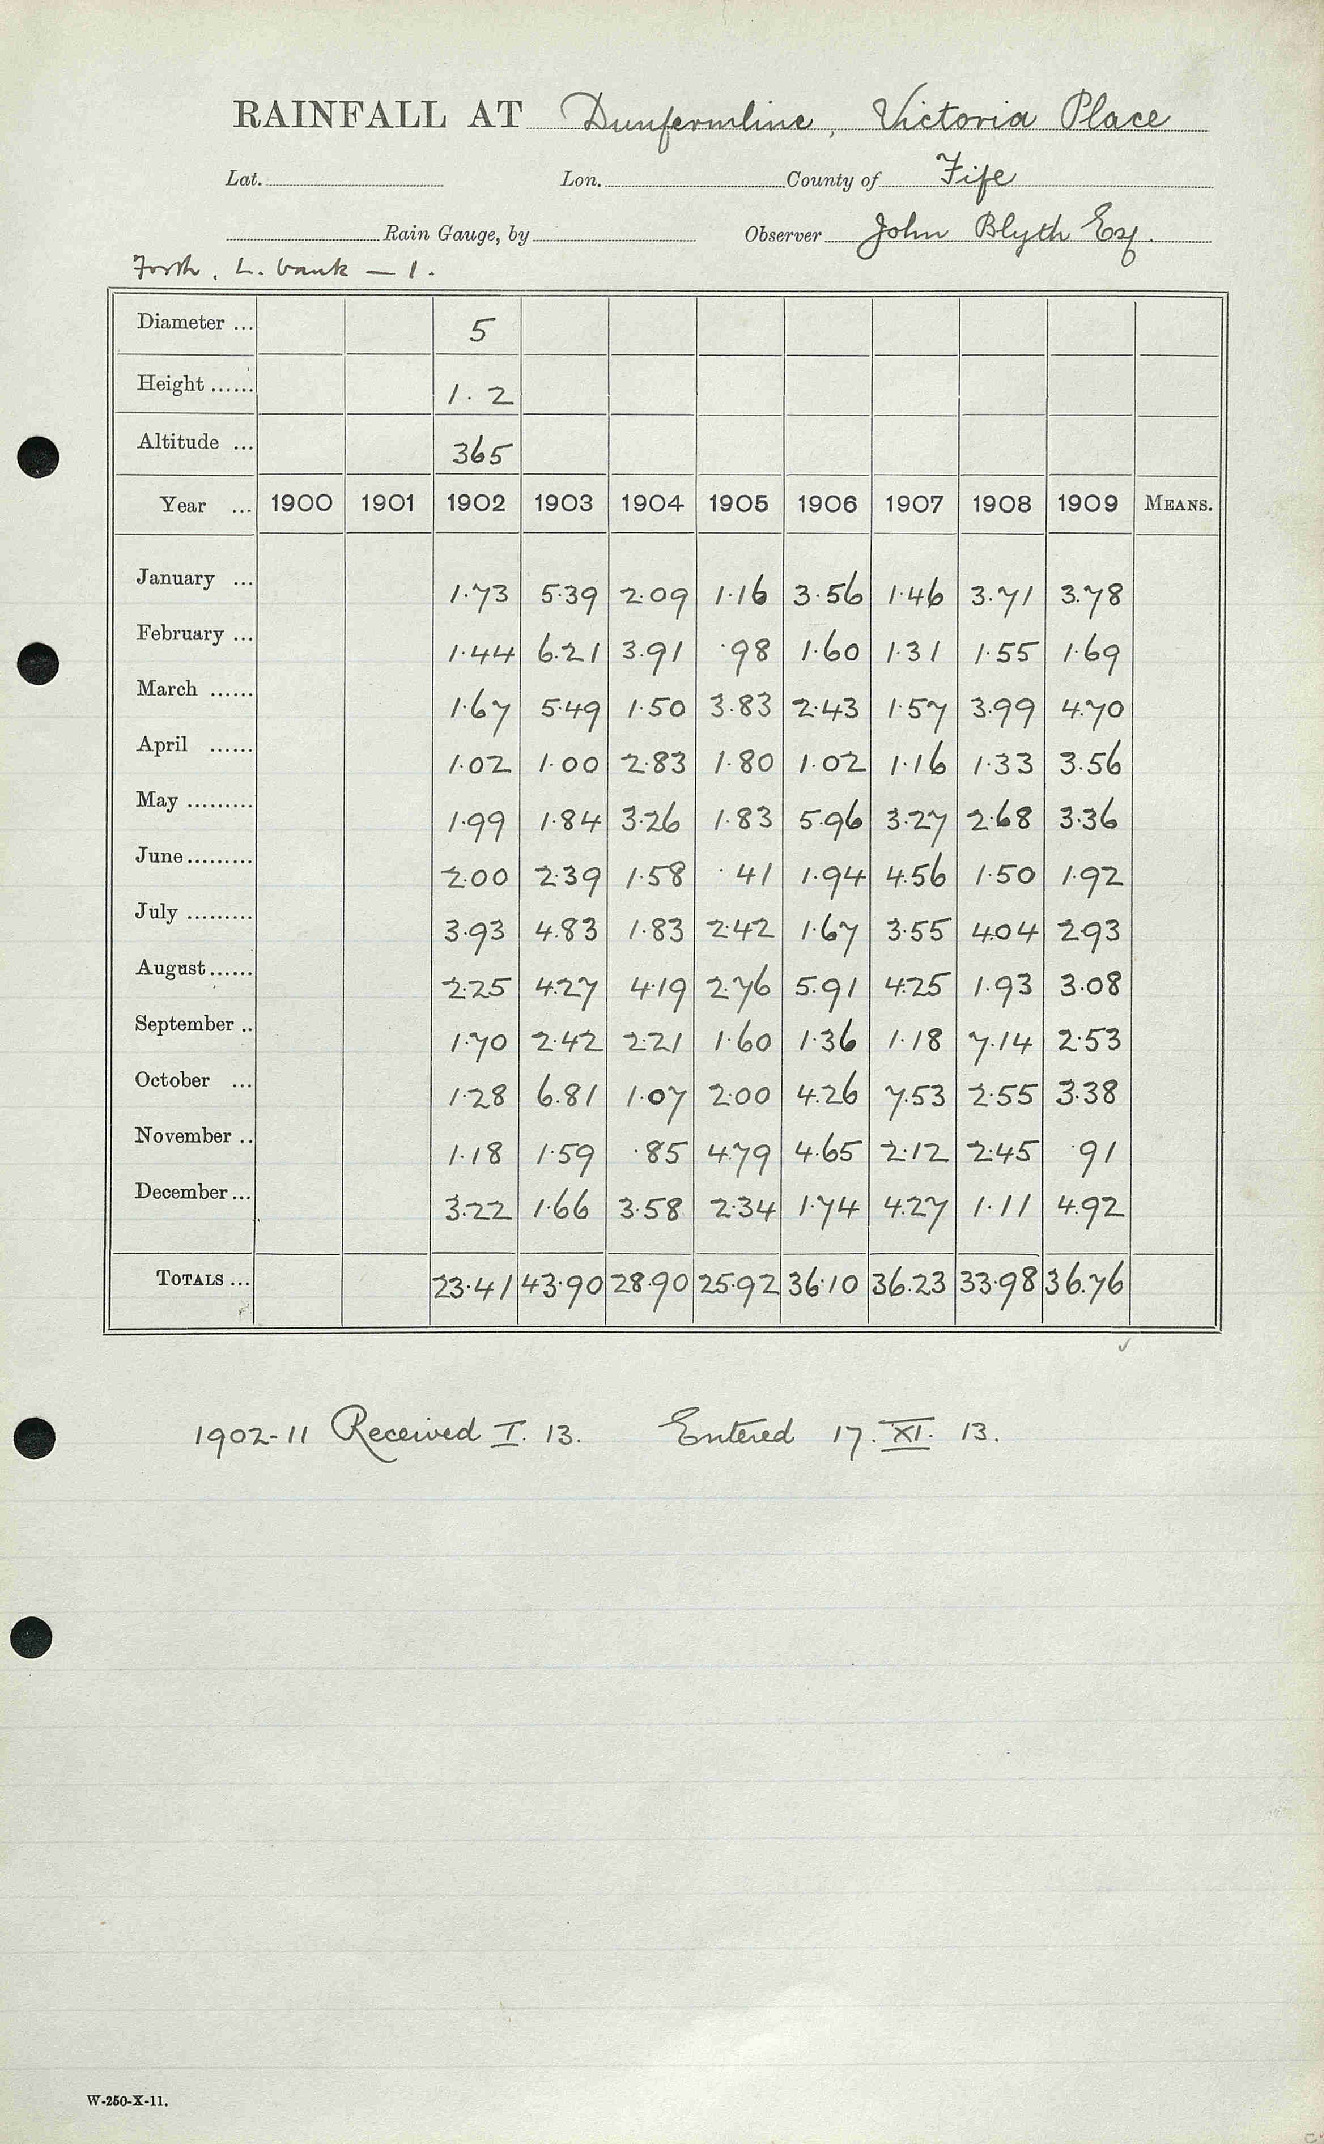 RAINFALL AT Dunfermline, Victoria Place
Lat. Lon. County of Fife
Rain Gauge, by Observer John Blyth Esq.
Forth, L. bank — 1.
Diameter ... 5
Height ...... 1.2
Altitude ... 365
Year ... 1900 1901 1902 1903 1904 1905 1906 1907 1908 1909 MEANS.
January ... 1.73 5.39 2.09 1.16 3.56 1.46 3.71 3.78
February ... 1.44 6.21 3.91 .98 1.60 1.31 1.55 1.69
March ...... 1.67 5.49 1.50 3.83 2.43 1.57 3.99 4.70
April ...... 1.02 1.00 2.83 1.80 1.02 1.16 1.33 3.56
May ......... 1.99 1.84 3.26 1.83 5.96 3.27 2.68 3.36
June ......... 2.00 2.39 1.58 .41 1.94 4.56 1.50 1.92
July ......... 3.93 4.83 1.83 2.42 1.67 3.55 4.04 2.93
August ...... 2.25 4.27 4.19 2.76 5.91 4.25 1.93 3.08
September .. 1.70 2.42 2.21 1.60 1.36 1.18 7.14 2.53
October ... 1.28 6.81 1.07 2.00 4.26 7.53 2.55 3.38
November .. 1.18 1.59 .85 4.79 4.65 2.12 2.45 .91
December ... 3.22 1.66 3.58 2.34 1.74 4.27 1.11 4.92
TOTALS ... 23.41 43.90 28.90 25.92 36.10 36.23 33.98 36.76
1902-11 Received I. 13. Entered 17. XI. 13.
W-250-X-11.